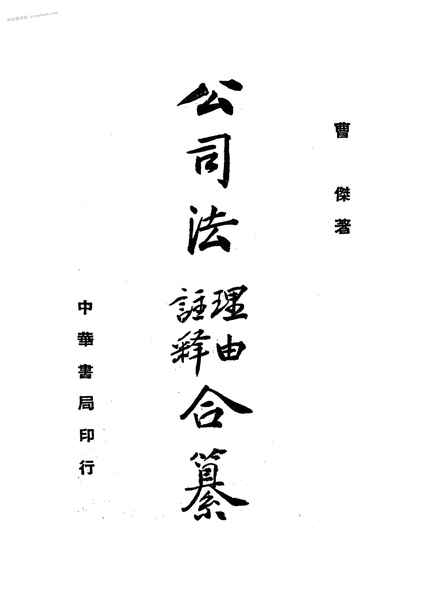 曹傑著
公司法
理由
註釋
合纂
中華書局印行